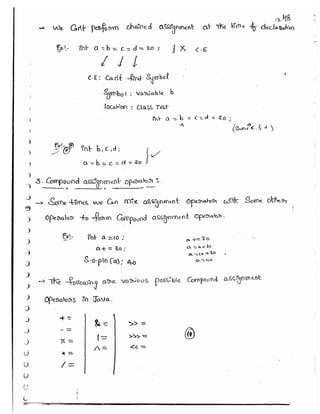 48
→ We Can't perform chained assignment at the time of declaration
Eg:- int a = b = c = d = 20 ; } X C.E
C.E : Can't find symbol
Symbol : variable b
location : class Test
int a = b = c = d = 20 ;
^
Eg: ② int b, c, d ;
a = b = c = d = 20 } ✓
3. Compound assignment operators :-
→ Some times we can mix assignment operator with some other
operator to form Compound assignment operator.
Eg:- int a = 10 ; a += 30
a += 30 ; a = a + 30
S.o.pln (a) ; 40 a = 10 + 30
a = 40
→ The following are the various possible Compound assignment
Operators in Java.
+= &= >>=
-= |= >>>= (11)
%= ^= <<=
*=
/=